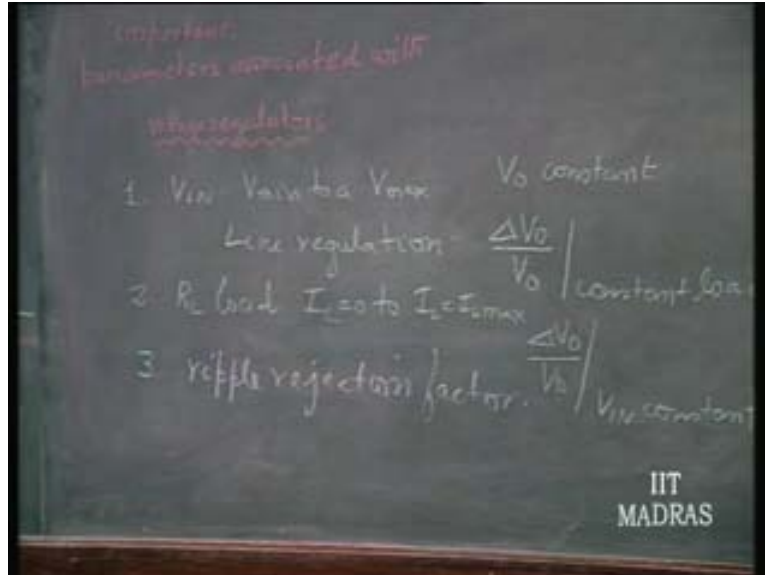 important
parameters associated with
voltage regulators
1. VIN Vmin to a Vmax V0 constant
Line regulation ΔV0/V0 | constant loa
2. RL load IL=0 to IL=ILmax
ΔV0/V0 | VIN constant
3 ripple rejection factor.
IIT
MADRAS